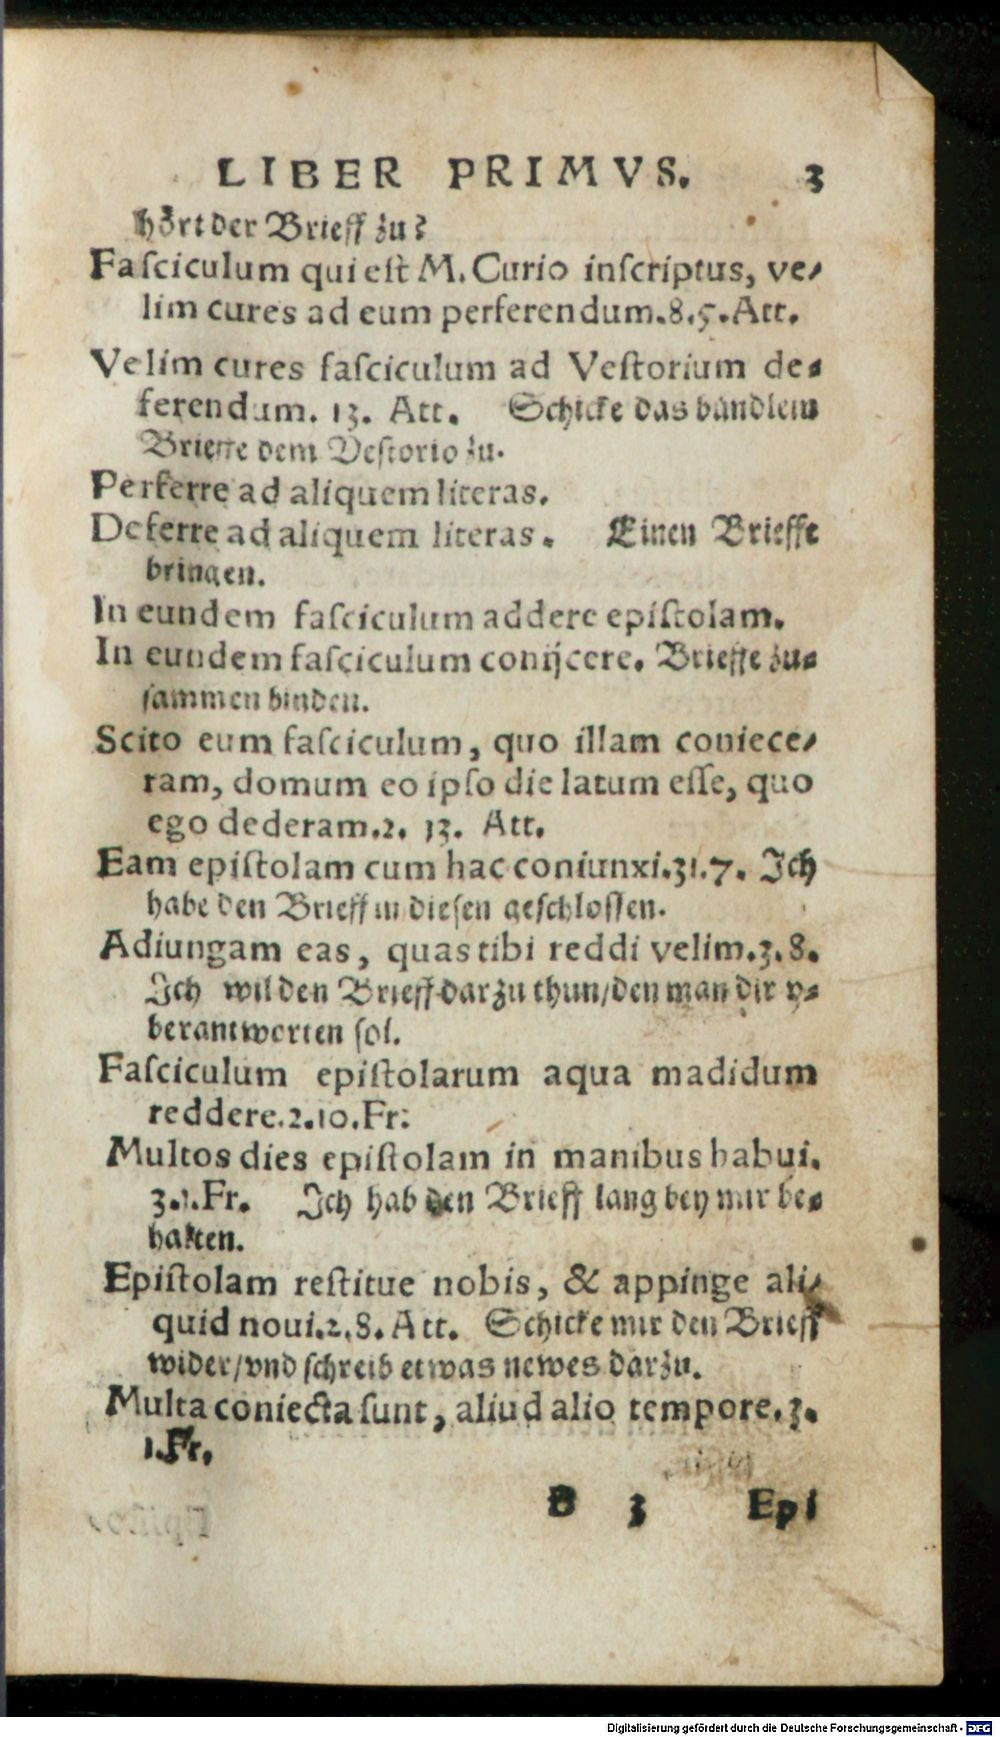 LIBER PRIMVS. 3
hört der Brieff zu?
Faſciculum qui eſt M. Curio inſcriptus, ve-
lim cures ad eum perferendum.8.5.Att.
Velim cures faſciculum ad Veſtorium de-
ferendum. 13. Att. Schicke das bündlein
Brieffe dem Veſtorio zu.
Perferre ad aliquem literas.
Deferre ad aliquem literas. Einen Brieffe
bringen.
In eundem faſciculum addere epiſtolam.
In eundem faſciculum conijcere. Brieffe zu-
ſammen binden.
Scito eum faſciculum, quo illam coniece-
ram, domum eo ipſo die latum eſſe, quo
ego dederam.2. 13. Att.
Eam epiſtolam cum hac coniunxi.31.7. Ich
habe den Brieff in dieſen geſchloſſen.
Adiungam eas, quas tibi reddi velim.3.8.
Ich wil den Brieff darzu thun/den man dir v-
berantworten ſol.
Faſciculum epiſtolarum aqua madidum
reddere.2.10.Fr.
Multos dies epiſtolam in manibus habui.
3.1.Fr. Ich hab den Brieff lang bey mir be-
halten.
Epiſtolam reſtitue nobis, & appinge ali-
quid noui.2.8. Att. Schicke mir den Brieff
wider/vnd ſchreib etwas newes darzu.
Multa coniecta ſunt, aliud alio tempore.3.
1.Fr.
B 3 Epi
Digitalisierung gefördert durch die Deutsche Forschungsgemeinschaft - DFG